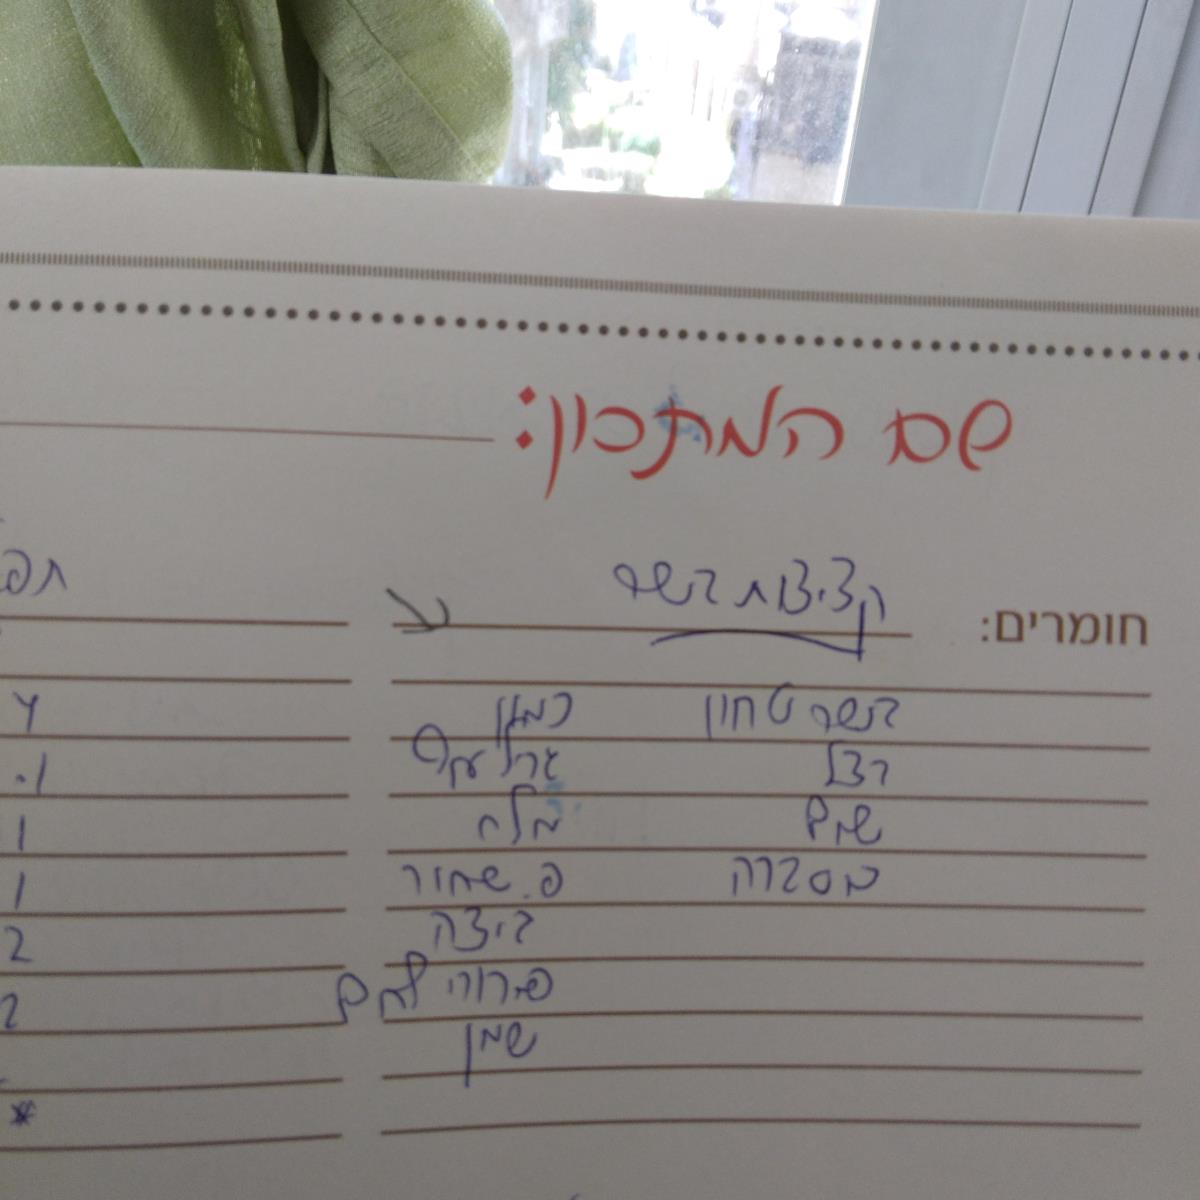 שם המתכון:
חומרים: קציצות בשר
בשר טחון כמון
בצל אבק' עוף
שום מלח
כוסברה פ. שחור
ביצה
פירורי לחם
שמן
תפ
1
1
2
2
*